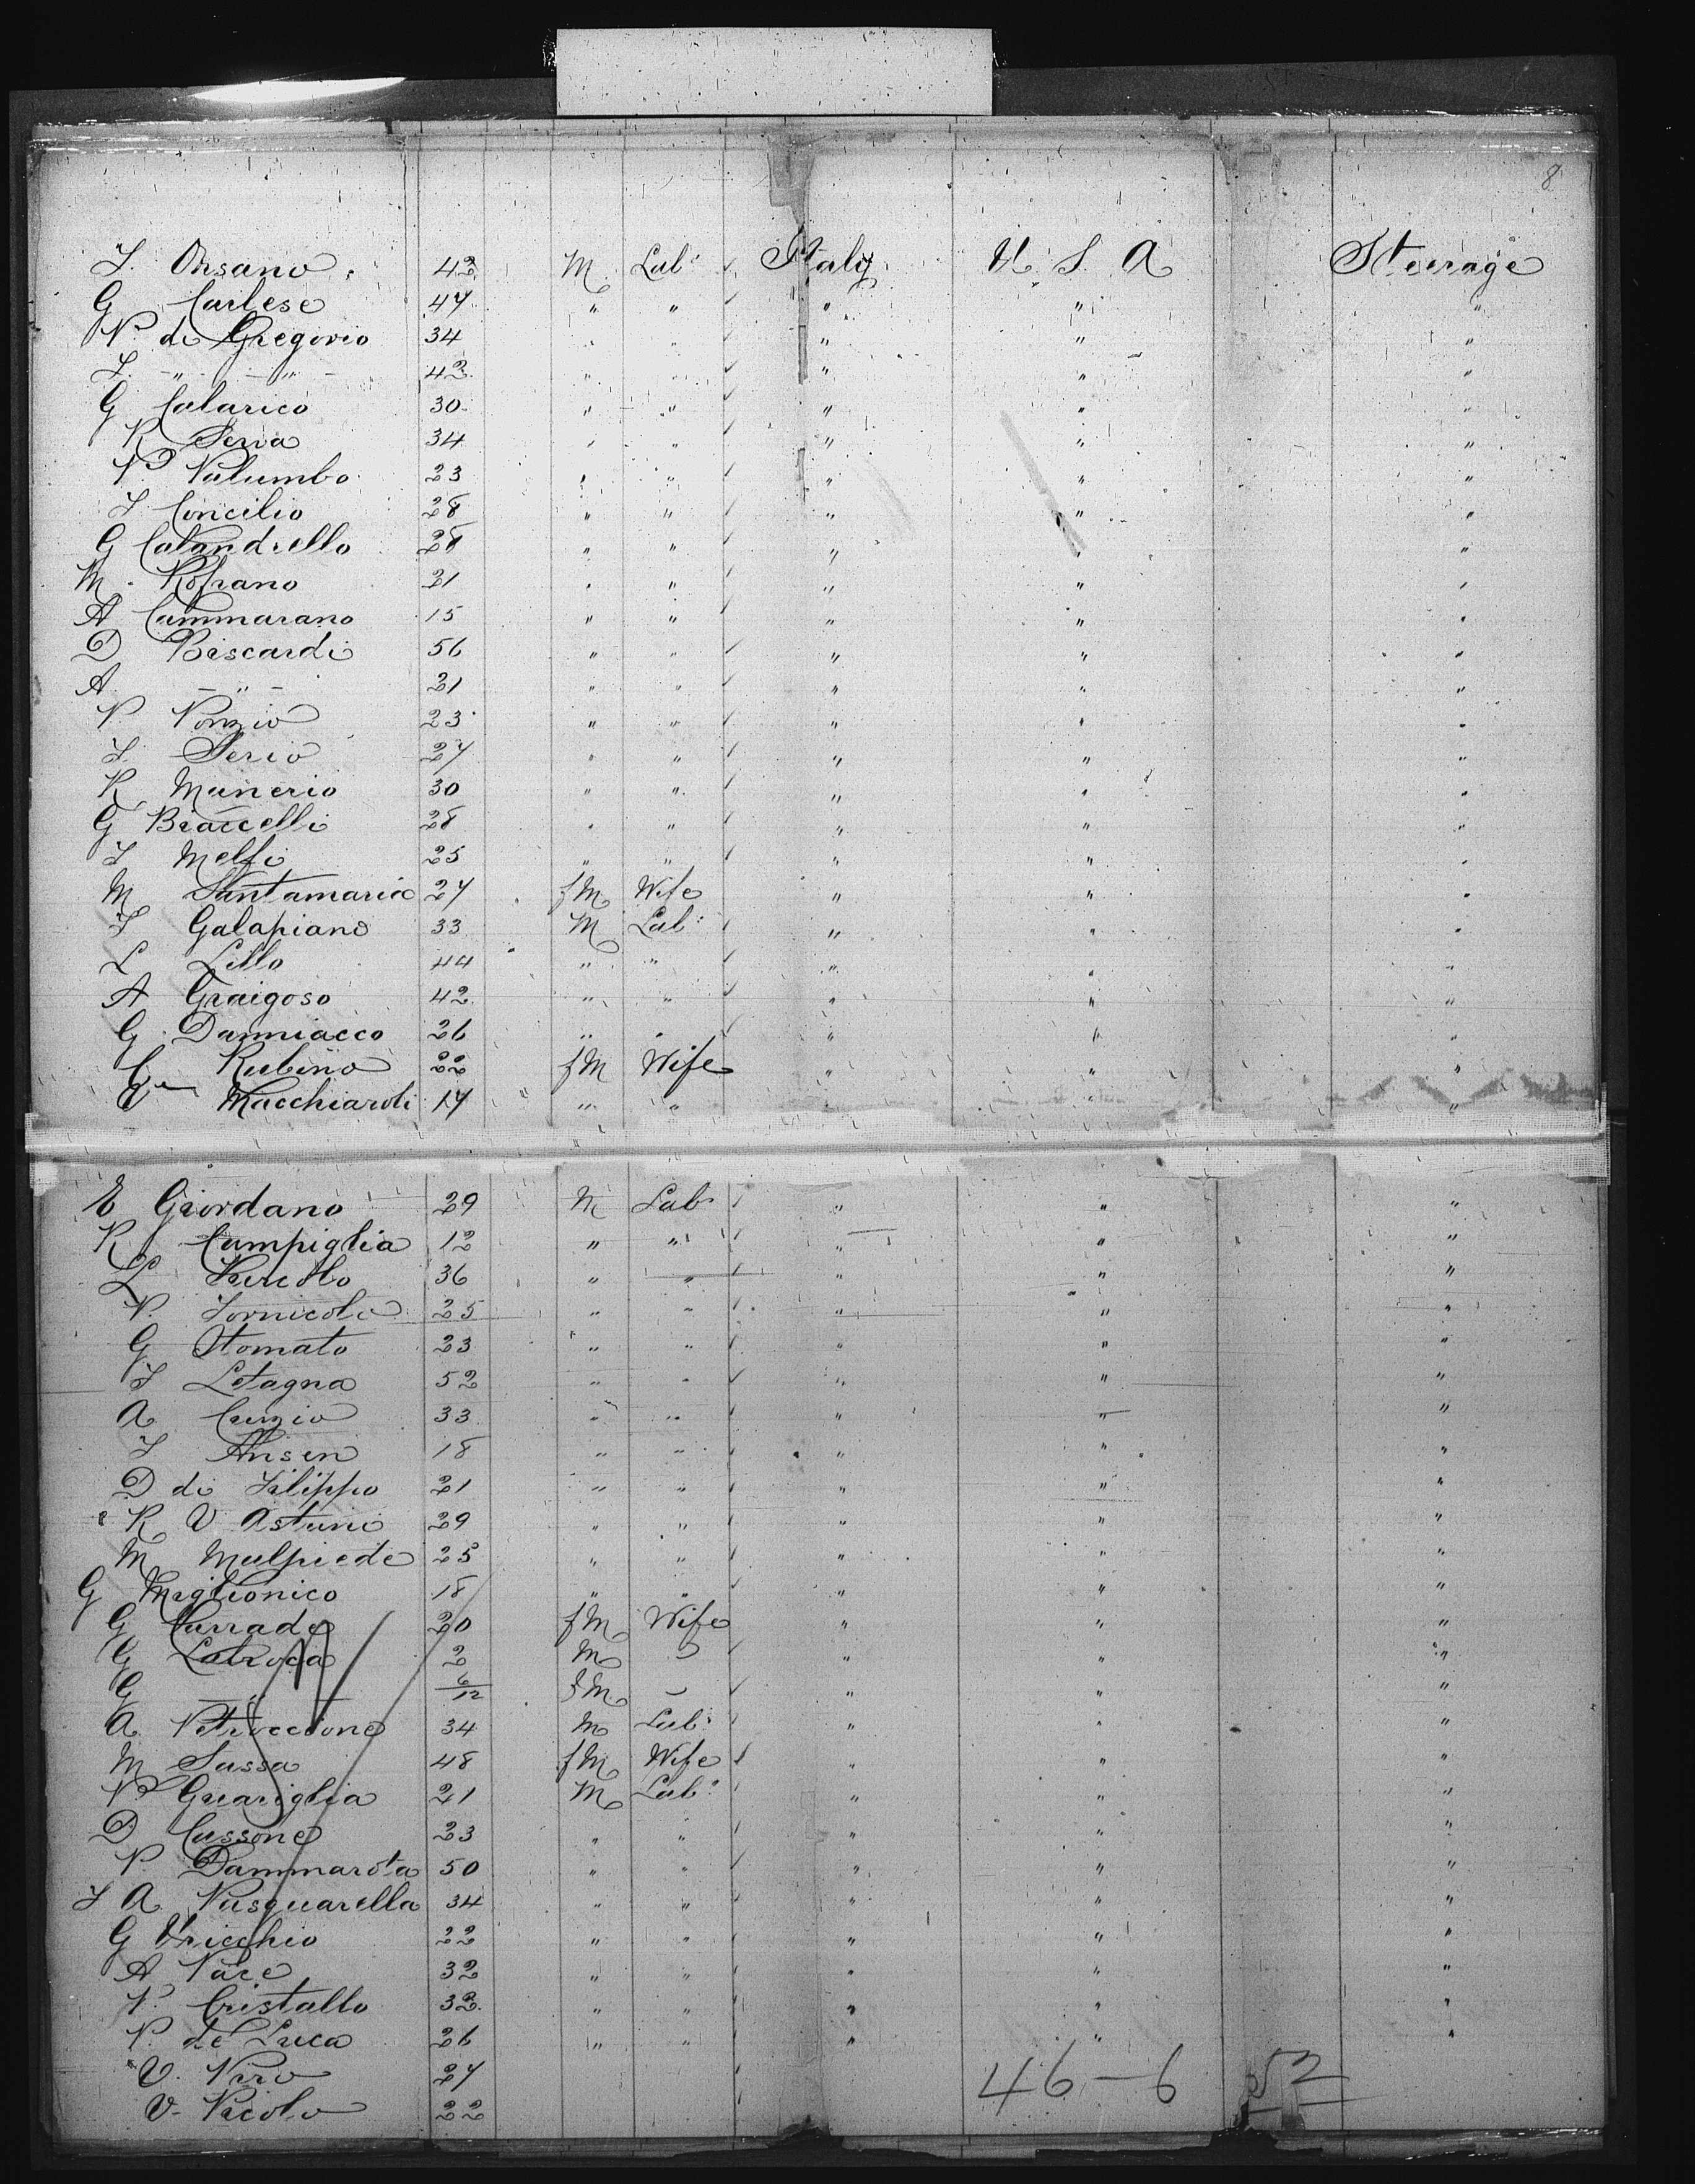 8
F. Orsano 42 M Lab: ✓ Italy U. S. A Steerage
G Carlese 47 " " ✓ " " "
N. di Gregorio 34 " " ✓ " " "
F. - " - " - 42 " " ✓ " " "
G Calarico 30 " " ✓ " " "
R Serva 34 " " ✓ " " "
P Palumbo 23 " " ✓ " " "
F Concilio 28 " " ✓ " " "
G Calandrello 28 " " ✓ " " "
M. Rofrano 21 " " ✓ " " "
A Cammarano 15 " " ✓ " " "
D Biscardi 56 " " ✓ " " "
A - " - 21 " " ✓ " " "
P. Ponzio 23 " " ✓ " " "
F. Serio 27 " " ✓ " " "
R Manerio 30 " " ✓ " " "
G Braccelli 28 " " ✓ " " "
F Melfi 25 " " ✓ " " "
M Santamaria 27 fM Wife " " "
F Galapiano 33 M Lab: ✓ " " "
L Lillo 44 " " ✓ " " "
A Graigoso 42 " " ✓ " " "
G. Damiacco 26 " " ✓ " " "
C Rubino 22 fM Wife " " "
Macchiaroli 17 " " " " "
E Giordano 29 M Lab ✓ " " "
R Campiglia 12 " " ✓ " " "
36 " " ✓ " " "
P. Fornicola 25 " " ✓ " " "
G Stomato 23 " " ✓ " " "
F Letagna 52 " " ✓ " " "
A Curzio 33 " " ✓ " " "
F Ansen 18 " " ✓ " " "
D di Filippo 21 " " ✓ " " "
R V Astuni 29 " " ✓ " " "
M Malpiede 25 " " ✓ " " "
G Miglionico 18 " " ✓ " " "
G Carrado 20 fM Wife " " "
G Latroca 2 M ✓ " " "
G - " - 6/12 fM ✓ " " "
A Petroccione 34 M Lab: ✓ " " "
M Sassa 48 fM Wife ✓ " " "
P Guariglia 21 M Lab: ✓ " " "
D Cassone 23 " " ✓ " " "
P. Dammarota 50 " " ✓ " " "
F A Pasquarella 34 " " ✓ " " "
G Uricchio 22 " " ✓ " " "
A Pace 32 " " ✓ " " "
P. Cristallo 32 " " ✓ " " "
P. de Luca 26 " " ✓ " " "
V. Piro 27 ✓ 46-6 52
V. Picolo 22 ✓